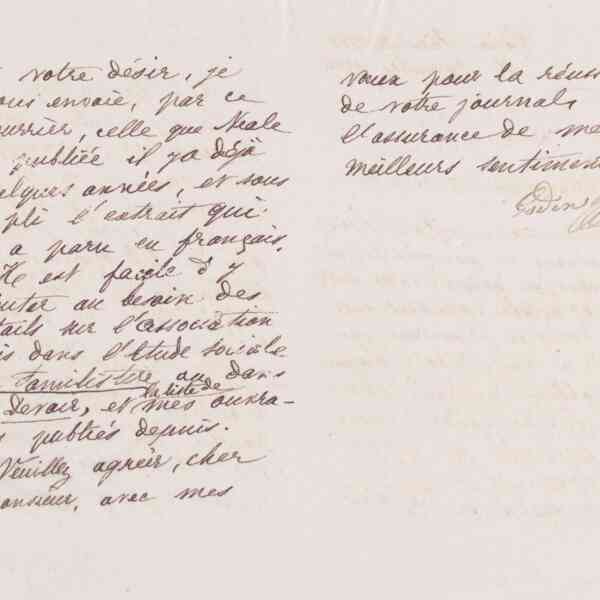 votre désir, je
ous envoie, par ce
ourrier, celle que Neale
publiée il y a déjà
elques années, et sous
pli l'extrait qui
a paru en français.
Il est facile d'y
outer au besoin des
tails sur l'association
is dans l'Etude sociale
Familistère ou dans
la liste de
Devoir, et mes ouvra-
s publiés depuis.
Veuillez agréer, cher
onsieur, avec mes
vœux pour la réuss
de votre journal,
l'assurance de me
meilleurs sentiment
Godin